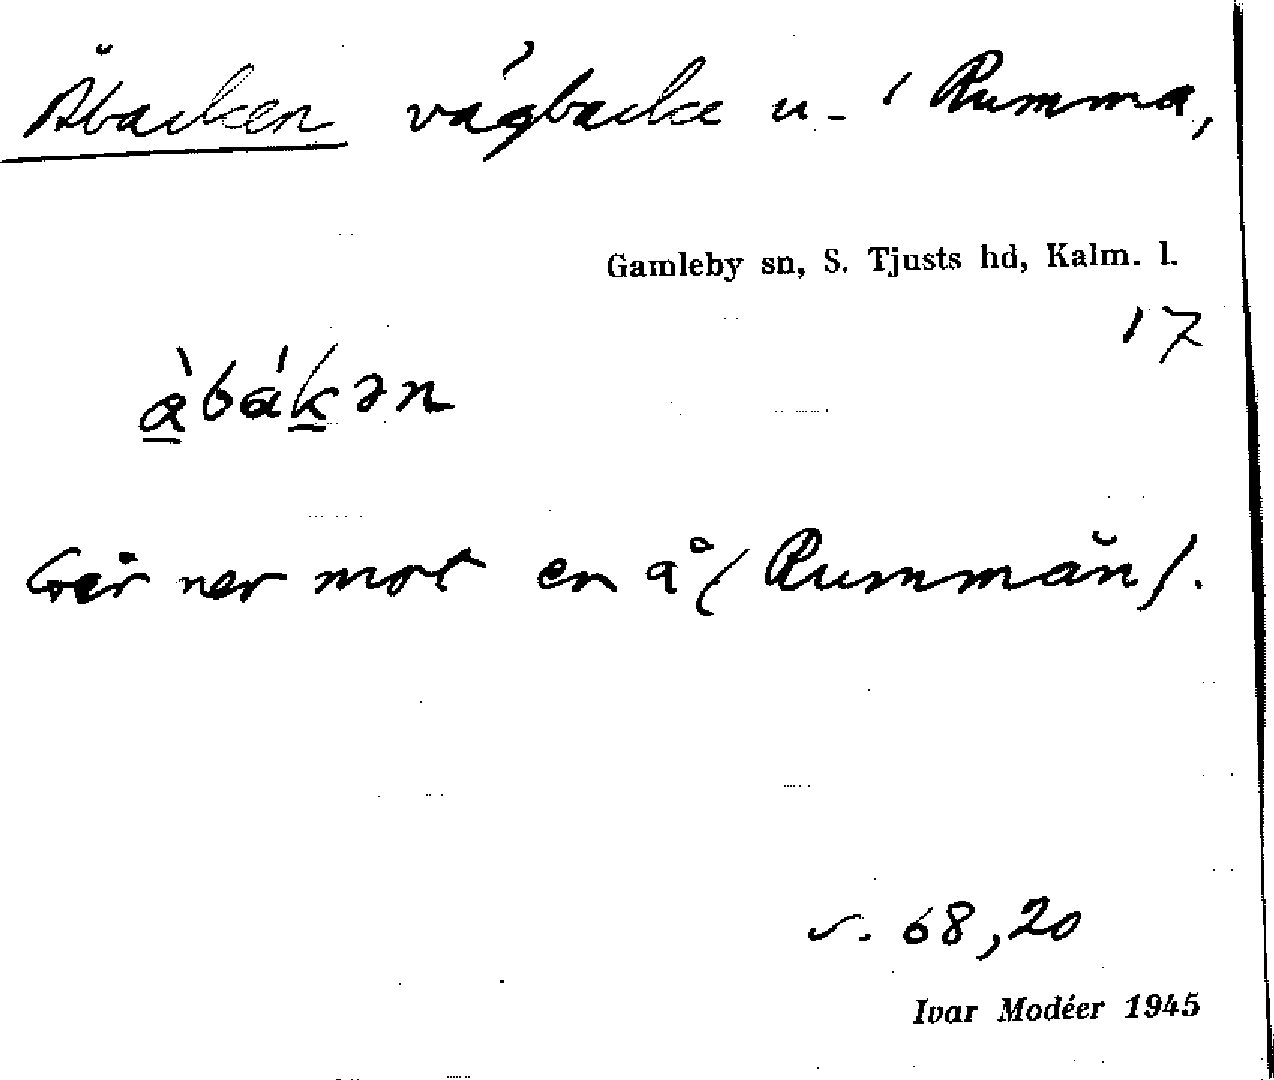 Åbacken vägbacke u. i Rumma,
Gamleby sn, S. Tjusts hd, Kalm. l.
17
à̲bák̲ən
Går ner mot en å (Rummån).
s. 68,20
Ivar Modéer 1945